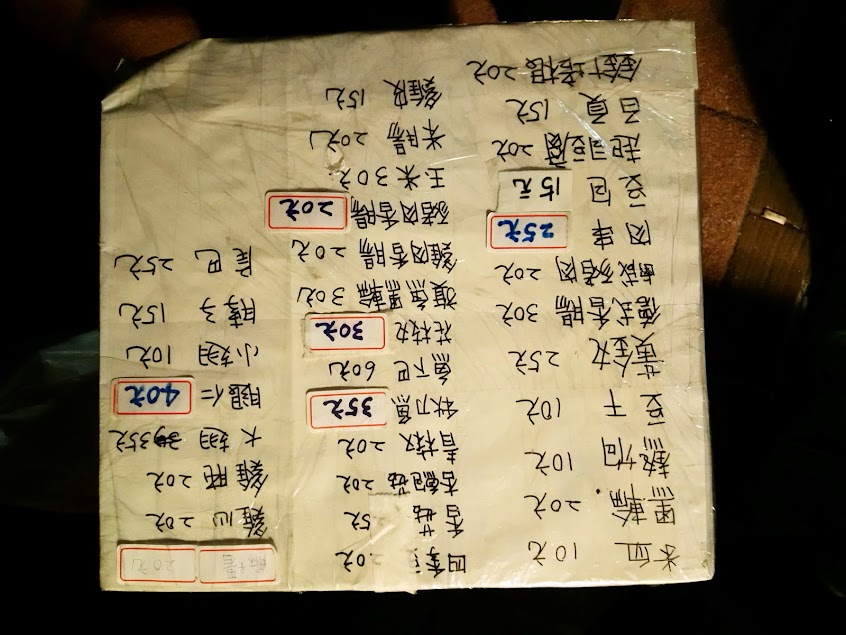 米血 10元
黑輪 20元
熱狗 10元
豆干 10元
黃金丸 25元
德式香腸 30元
鹹豬肉 20元
肉串 25元
豆包 15元
起司豆腐 20元
百頁 15元
金針培根 20元
四季 20元
香菇 5元
杏鮑菇 20元
青椒 20元
秋刀魚 35元
魚下巴 60元
花枝丸 30元
旗魚黑輪 30元
雞肉香腸 20元
豬肉香腸 20元
玉米 30元
米腸 20元
雞皮 15元
20元
雞心 20元
雞 20元
大翅 35元
腿仁 40元
小翅 10元
脖子 15元
尾巴 25元